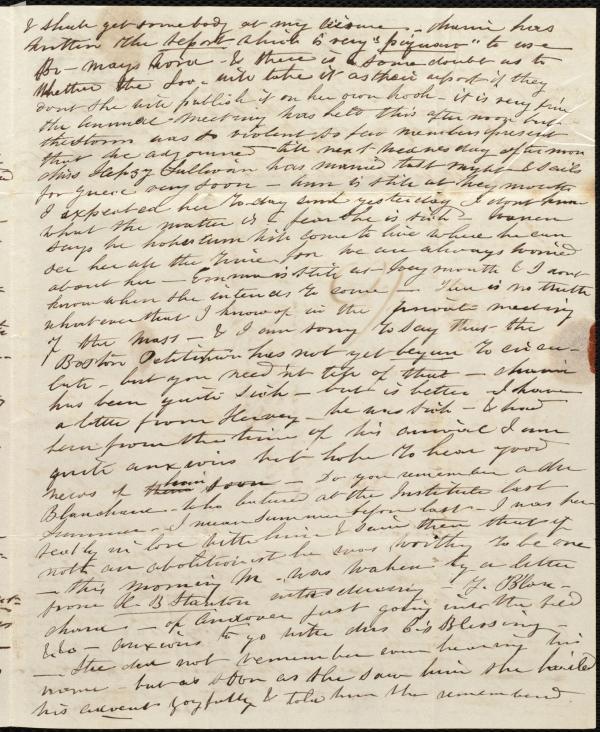 & shall get somebody at my leisure - Maria has
written the report which is very "piquant" to use
Mr May's word - & there is some doubt as to
whether the Soc. will take it as their report if they
dont she will publish it on her own hook - it is very fine
the annual meeting was held this afternoon but
the storm was so violent & so few members present
that we adjourned till next Wednesday afternoon
Miss Hepsy Sullivan was married last night & sails
for Greece very soon - Ann is still at Weymouth
I expected her today and yesterday I dont know
what the matter is I fear she is sick - Warren
says he wishes Ann wd come to live where he can
see her all the time for we are always worried
about her - Emma is still at Weymouth & I dont
know when she intends to come - There is no truth
whatever that I know of in the private meeting
of the Mass - & I am sorry to say that the
Boston Petition has not yet begun to circu-
late - but you needn't tell of that - Maria
has been quite sick - but is better - I have
a letter from Hervey - he was sick - & had
been from the time of his arrival I am
quite anxious but hope to hear good
news of him soon - Do you remember a Mr
Blanchard who lectured at the Institute last
summer - I mean summer before last - I was per-
fectly in love with him & said then that if
not an abolitionist he was worthy to be one
- this morning M - was waken by a letter
from H B Stanton introducing J. Blan-
chard - of Andover just going into the field
&c - anxious to go with Mrs C's Blessing -
- She did not remember ever hearing his
name but as soon as she saw him she hailed
his advent joyfully & told him she remembered